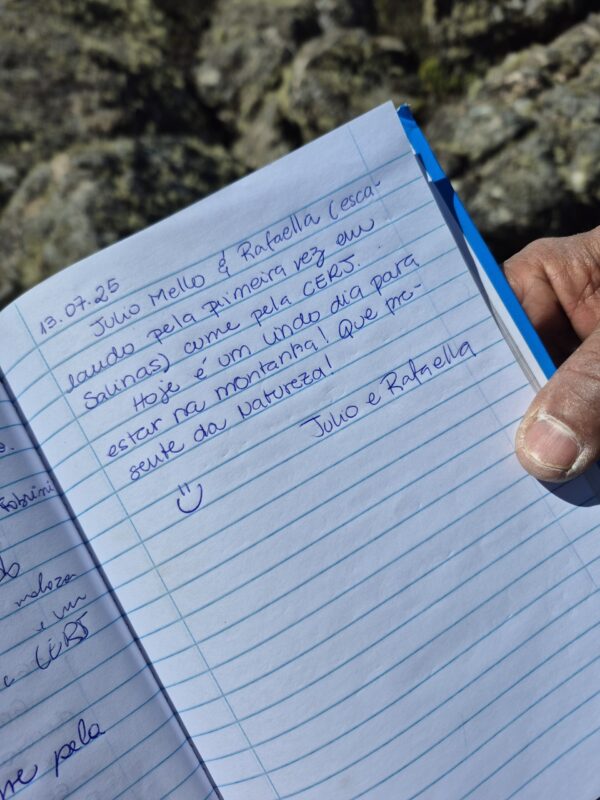 13.07.25
Julio Mello & Rafaella (esca-
lando pela primeira vez em
Salinas) cume pela CERJ.
Hoje é um lindo dia para
estar na montanha! Que pre-
sente da Natureza!
Julio e Rafaella
Fabrini
e um
CERJ
pela